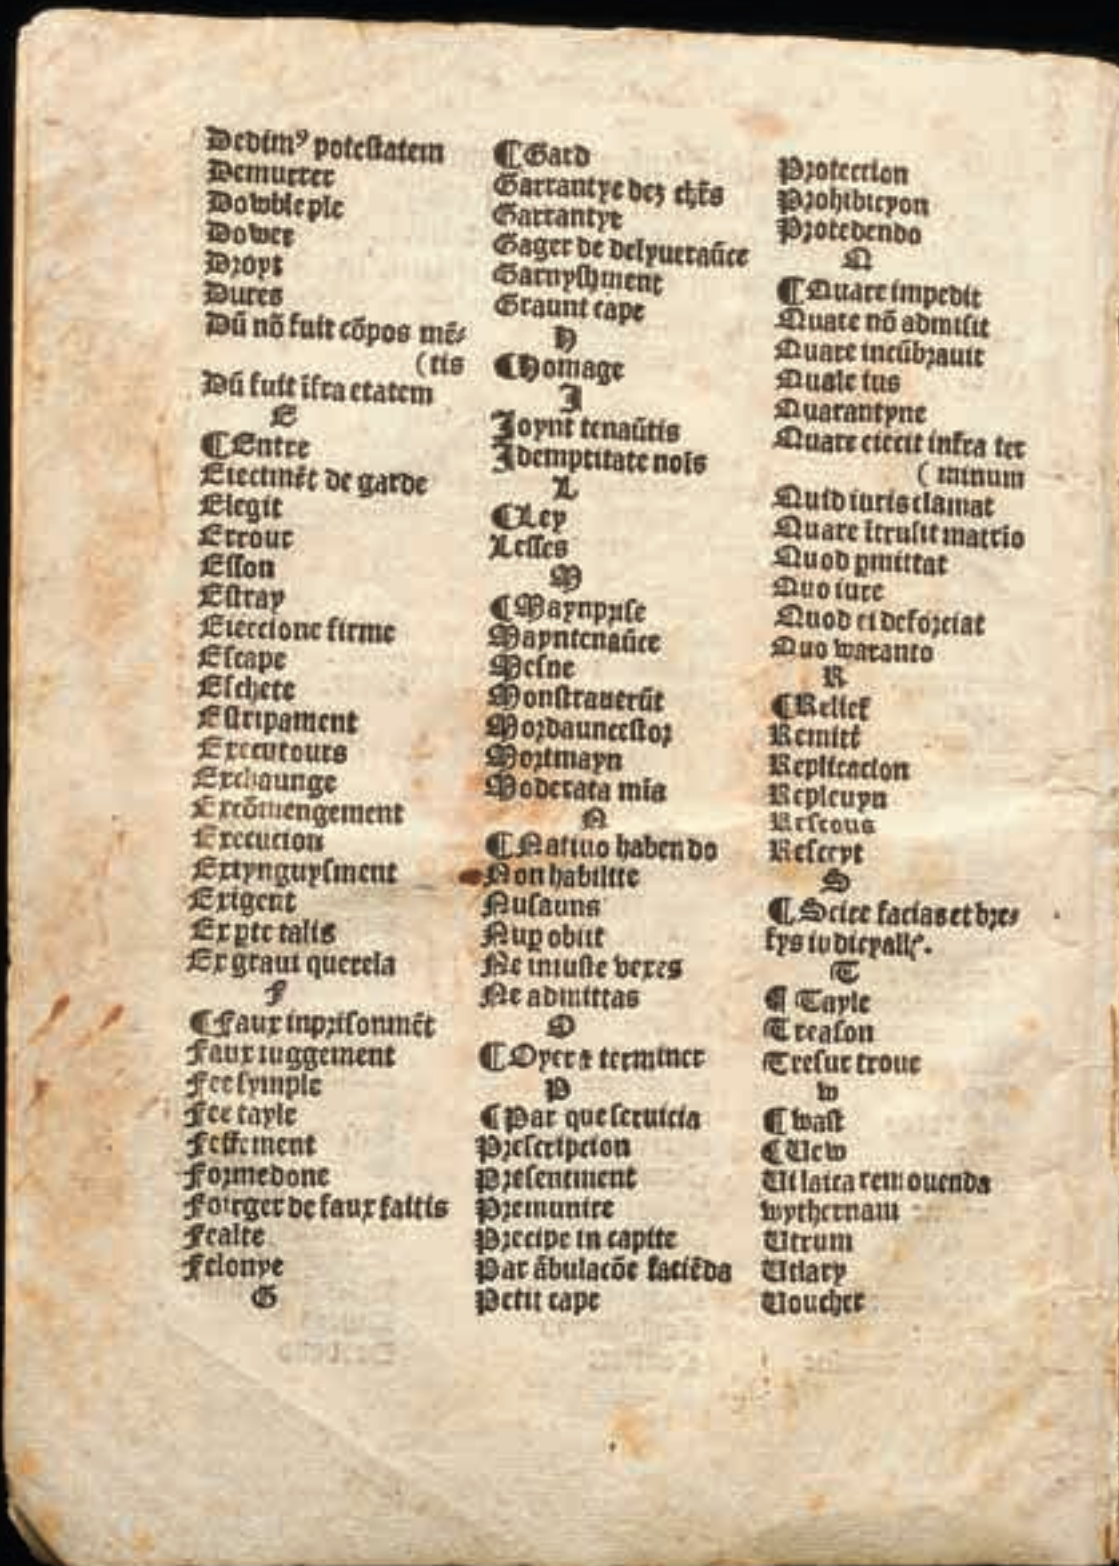 Dedimꝰ potestatem
Demurrer
Dowble ple
Dower
Droyt
Dures
Dū nō fuit cōpos mē⸗
(tis
Dū fuit ifra etatem
E
¶Entre
Eiectmēt de garde
Elegit
Errour
Esson
Estray
Eieccione firme
Escape
Eschete
Estripament
Executours
Exchaunge
Excōmengement
Execucion
Extynguysment
Exigent
Ex pte talis
Ex graui querela
F
¶Faux inprisonmēt
Faux iuggement
Fee symple
Fee tayle
Feffement
Formedone
Foirger de faux faltis
Fealte
Felonye
G
¶Gard
Garrantye dez
Garrantye
Gager de delyueraūce
Garnyshment
Graunt cape
H
¶Homage
I
Ioynt tenaūtis
Idemptitate nois
L
¶Ley
Lesses
M
¶Maynprise
Mayntenaūce
Mesne
Monstrauerūt
Mordauncestor
Mortmayn
Moderata mia
N
¶Natiuo habendo
Non habilite
Nusauns
Nup obiit
Ne iniuste vexes
Ne admittas
O
¶Oyer ⁊ terminer
P
¶Par que seruicia
Prescripcion
Presentment
Premunire
Precipe in capite
Par ābulacōe faciēda
Petit cape
Protection
Prohibicyon
Procedendo
Q
¶Quare impedit
Quare nō admisit
Quare incūbrauit
Quale ius
Quarantyne
Quare eiecit infra ter
(minum
Quid iuris clamat
Quare ītrusit matrio
Quod pmittat
Quo iure
Quod ei deforciat
Quo waranto
R
¶Relief
Remitt̄
Replicacion
Repleuyn
Rescous
Resceyt
S
¶Scire facias et bre⸗
fys iudicyallꝭ.
T
¶Tayle
Treason
Tresur troue
w
¶wast
¶Uew
Ui laica remouenda
wythernam
Utrum
Utlary
Voucher